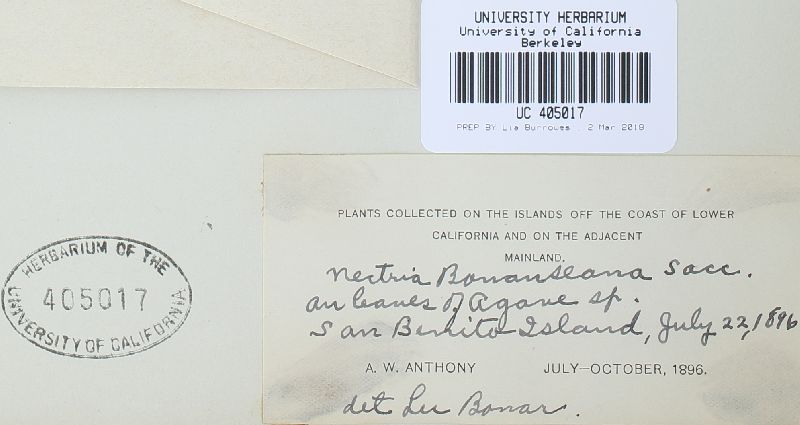 UNIVERSITY HERBARIUM
University of California
Berkeley
UC 405017
PREP BY Lia Burrowes . 2 Mar 2018
PLANTS COLLECTED ON THE ISLANDS OFF THE COAST OF LOWER
CALIFORNIA AND ON THE ADJACENT
MAINLAND.
Nectria Bonanseana Sacc.
on leaves of Agave sp.
San Benito Island, July 22, 1896
A. W. ANTHONY JULY-OCTOBER, 1896.
det Lee Bonar.
HERBARIUM OF THE
405017
UNIVERSITY OF CALIFORNIA